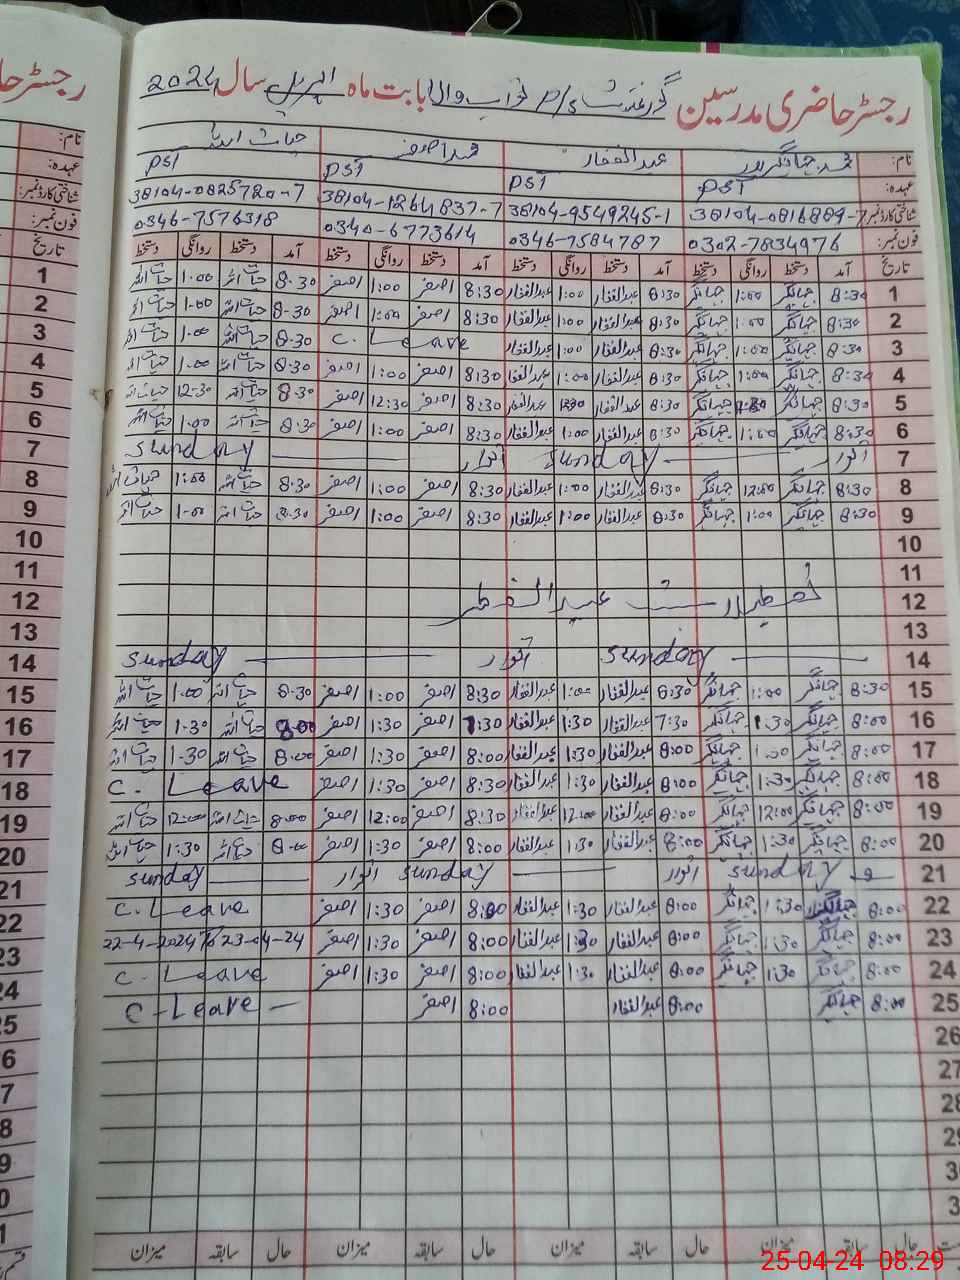 رجسٹر حاضری مدرسین گورنمنٹ P/S نواب والا بابت ماہ اپریل سال 2024
نام: محمد جہانگیر عبدالغفار محمد اصغر حیات اللہ
عہدہ: PST PST PST PST
شناختی کارڈ نمبر: 38104-0816889-7 38104-9549245-1 38104-1264837-7 38104-0825720-7
فون نمبر: 0302-7834976 0346-7584787 0340-6773614 0346-7576318
تاریخ آمد دستخط روانگی دستخط آمد دستخط روانگی دستخط آمد دستخط روانگی دستخط آمد دستخط روانگی دستخط تاریخ
1 8:30 جہانگیر 1:00 جہانگیر 8:30 عبدالغفار 1:00 عبدالغفار 8:30 اصغر 1:00 اصغر 8-30 حیات اللہ 1-00 حیات اللہ 1
2 8:30 جہانگیر 1:00 جہانگیر 8:30 عبدالغفار 1:00 عبدالغفار 8:30 اصغر 1:00 اصغر 8-30 حیات اللہ 1-00 حیات اللہ 2
3 8:30 جہانگیر 1:00 جہانگیر 8:30 عبدالغفار 1:00 عبدالغفار C. Leave 8-30 حیات اللہ 1-00 حیات اللہ 3
4 8:30 جہانگیر 1:00 جہانگیر 8:30 عبدالغفار 1:00 عبدالغفار 8:30 اصغر 1:00 اصغر 8-30 حیات اللہ 1-00 حیات اللہ 4
5 8:30 جہانگیر 12:30 جہانگیر 8:30 عبدالغفار عبدالغفار 8:30 اصغر 12:30 اصغر 8-30 حیات اللہ 12-30 حیات اللہ 5
6 8:30 جہانگیر 1:00 جہانگیر 8:30 عبدالغفار 1:00 عبدالغفار 8:30 اصغر 1:00 اصغر 8-30 حیات اللہ 1-00 حیات اللہ 6
7 اتوار Sunday اتوار Sunday 7
8 8:30 جہانگیر 12:00 جہانگیر 8:30 عبدالغفار 1:00 عبدالغفار 8:30 اصغر 1:00 اصغر 8-30 حیات اللہ 1:00 حیات اللہ 8
9 8:30 جہانگیر 1:00 جہانگیر 8:30 عبدالغفار 1:00 عبدالغفار 8:30 اصغر 1:00 اصغر 8-30 حیات اللہ 1-00 حیات اللہ 9
10 10
11 11
12 تعطیلات عید الفطر 12
13 13
14 Sunday اتوار Sunday 14
15 8:30 جہانگیر 1:00 جہانگیر 8:30 عبدالغفار 1:00 عبدالغفار 8:30 اصغر 1:00 اصغر 8-30 حیات اللہ 1-00 حیات اللہ 15
16 8:00 جہانگیر 1:30 جہانگیر 7:30 عبدالغفار 1:30 عبدالغفار اصغر 1:30 اصغر 8-00 حیات اللہ 1-30 حیات اللہ 16
17 8:00 جہانگیر 1:30 جہانگیر 8:00 عبدالغفار 1:30 عبدالغفار 8:00 اصغر 1:30 اصغر 8-00 حیات اللہ 1-30 حیات اللہ 17
18 8:00 جہانگیر 1:30 جہانگیر 8:00 عبدالغفار 1:30 عبدالغفار 8:30 اصغر 1:30 اصغر C. Leave 18
19 8:00 جہانگیر 12:00 جہانگیر 8:00 عبدالغفار 12:00 عبدالغفار 8:30 اصغر 12:00 اصغر 8-00 حیات اللہ 12-00 حیات اللہ 19
20 8:00 جہانگیر 1:30 جہانگیر 8:00 عبدالغفار 1:30 عبدالغفار 8:00 اصغر 1:30 اصغر 8-00 حیات اللہ 1:30 حیات اللہ 20
21 Sunday اتوار Sunday اتوار Sunday 21
22 8:00 جہانگیر 1:30 جہانگیر 8:00 عبدالغفار 1:30 عبدالغفار 8:00 اصغر 1:30 اصغر C. Leave 22
23 8:00 جہانگیر 1:30 جہانگیر 8:00 عبدالغفار 1:30 عبدالغفار 8:00 اصغر 1:30 اصغر 22-4-2024 To 23-04-24 23
24 8:00 جہانگیر 1:30 جہانگیر 8:00 عبدالغفار 1:30 عبدالغفار 8:00 اصغر 1:30 اصغر C. Leave 24
25 8:00 جہانگیر 8:00 عبدالغفار 8:00 اصغر C-Leave 25
26
27
28
29
حال سابقہ میزان حال سابقہ میزان حال سابقہ میزان حال سابقہ میزان
25-04-24 08:29